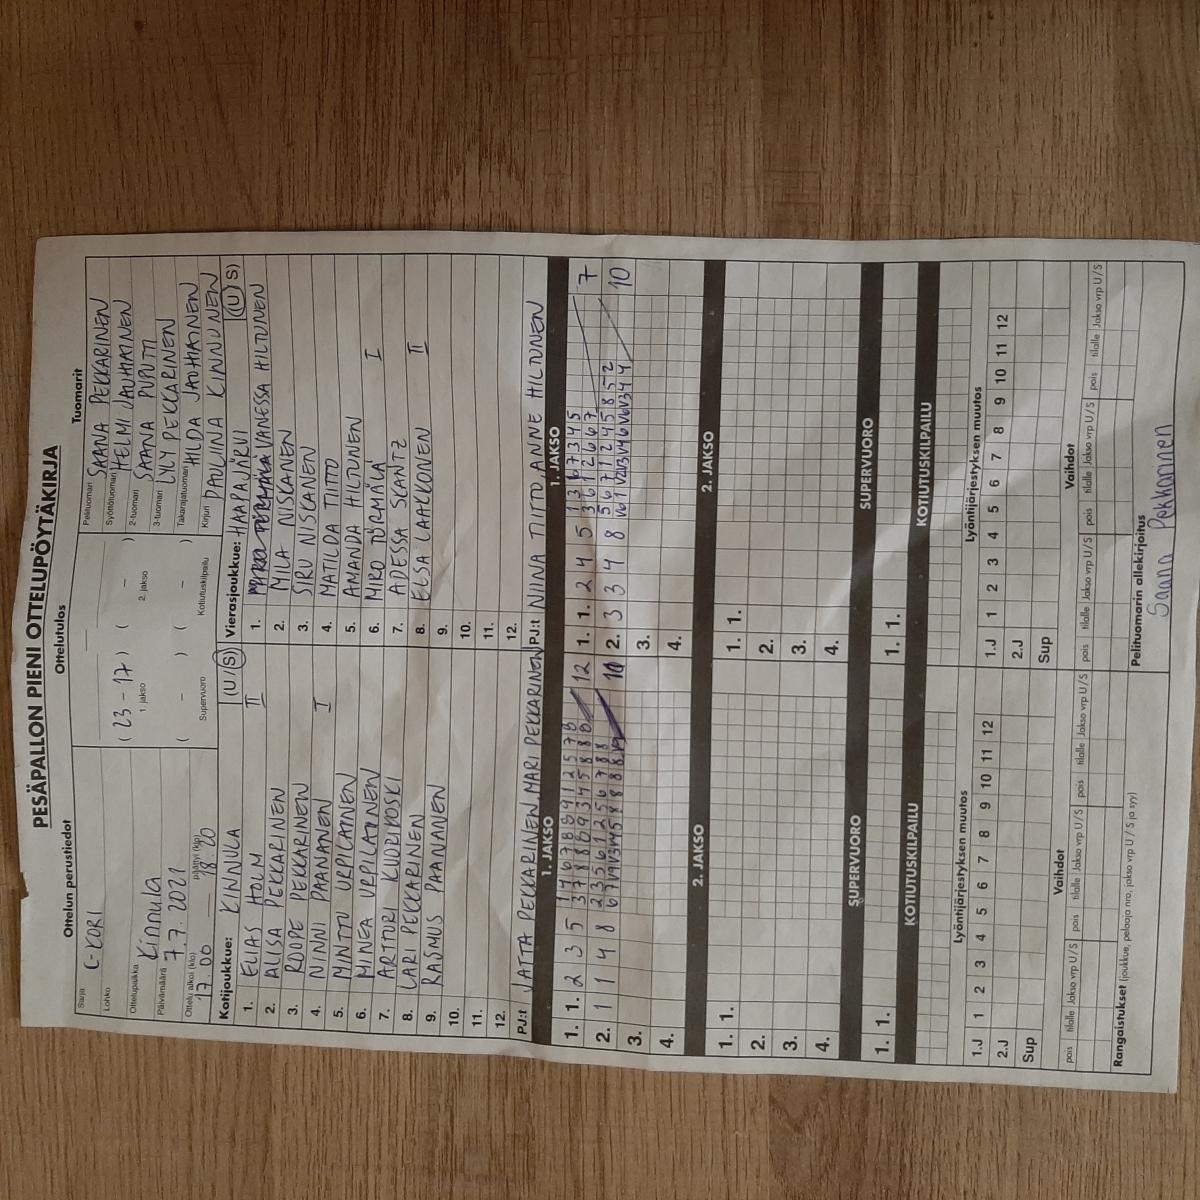 PESÄPALLON PIENI OTTELUPÖYTÄKIRJA
Ottelun perustiedot
Sarja C-KORI
Lohko
Ottelupaikka Kinnula
Päivämäärä 7.7.2021
Ottelu alkoi (klo) 17.00 päättyi (klo) 18 20
Ottelutulos
( 23 - 17 ) ( - )
1. jakso 2. jakso
( - ) ( - )
Supervuoro Kotiutuskilpailu
Tuomarit
Pelituomari SAANA PEKKARINEN
Syöttötuomari HELMI JAUHIAINEN
2-tuomari SAANA PUPUTTI
3-tuomari LYLY PEKKARINEN
Takarajatuomari HILDA JAUHIAINEN
Kirjuri PAULIINA KINNUNEN
Kotijoukkue: KINNULA (U/S)
1. ELIAS HOLM II
2. ALISA PEKKARINEN
3. ROOPE PEKKARINEN
4. NINNI PAANANEN I
5. MINTTU URPILAINEN
6. MINEA URPILAINEN
7. ARTTURI KUORIKOSKI
8. LARI PEKKARINEN
9. RASMUS PAANANEN
10.
11.
12.
PJ:t JATTA PEKKARINEN MARI PEKKARINEN
Vierasjoukkue: HAAPAJÄRVI (U/S)
1. VANESSA HILTUNEN
2. MILA NISKANEN
3. SIRU NISKANEN
4. MATILDA TIITTO
5. AMANDA HILTUNEN
6. MIRO TÖRMÄLÄ I
7. ADESSA SKANTZ
8. ELSA LAAKKONEN II
9.
10.
11.
12.
PJ:t NIINA TIITTO, ANNE HILTUNEN
1. JAKSO 1. JAKSO
1. 1. 2 3 5 12 1. 1. 2 4 5 7
2. 1 1 4 8 10 2. 3 3 4 8 10
3. 3.
4. 4.
2. JAKSO 2. JAKSO
1. 1. 1. 1.
2. 2.
3. 3.
4. 4.
SUPERVUORO SUPERVUORO
1. 1. 1. 1.
KOTIUTUSKILPAILU KOTIUTUSKILPAILU
Lyöntijärjestyksen muutos Lyöntijärjestyksen muutos
1.J 1 2 3 4 5 6 7 8 9 10 11 12 1.J 1 2 3 4 5 6 7 8 9 10 11 12
2.J 2.J
Sup Sup
Vaihdot Vaihdot
pois tilalle Jakso vrp U/S pois tilalle Jakso vrp U/S pois tilalle Jakso vrp U/S pois tilalle Jakso vrp U/S pois tilalle Jakso vrp U/S pois tilalle Jakso vrp U/S
Rangaistukset (joukkue, pelaaja nro, jakso vrp U / S ja syy)
Pelituomarin allekirjoitus
Saana Pekkarinen